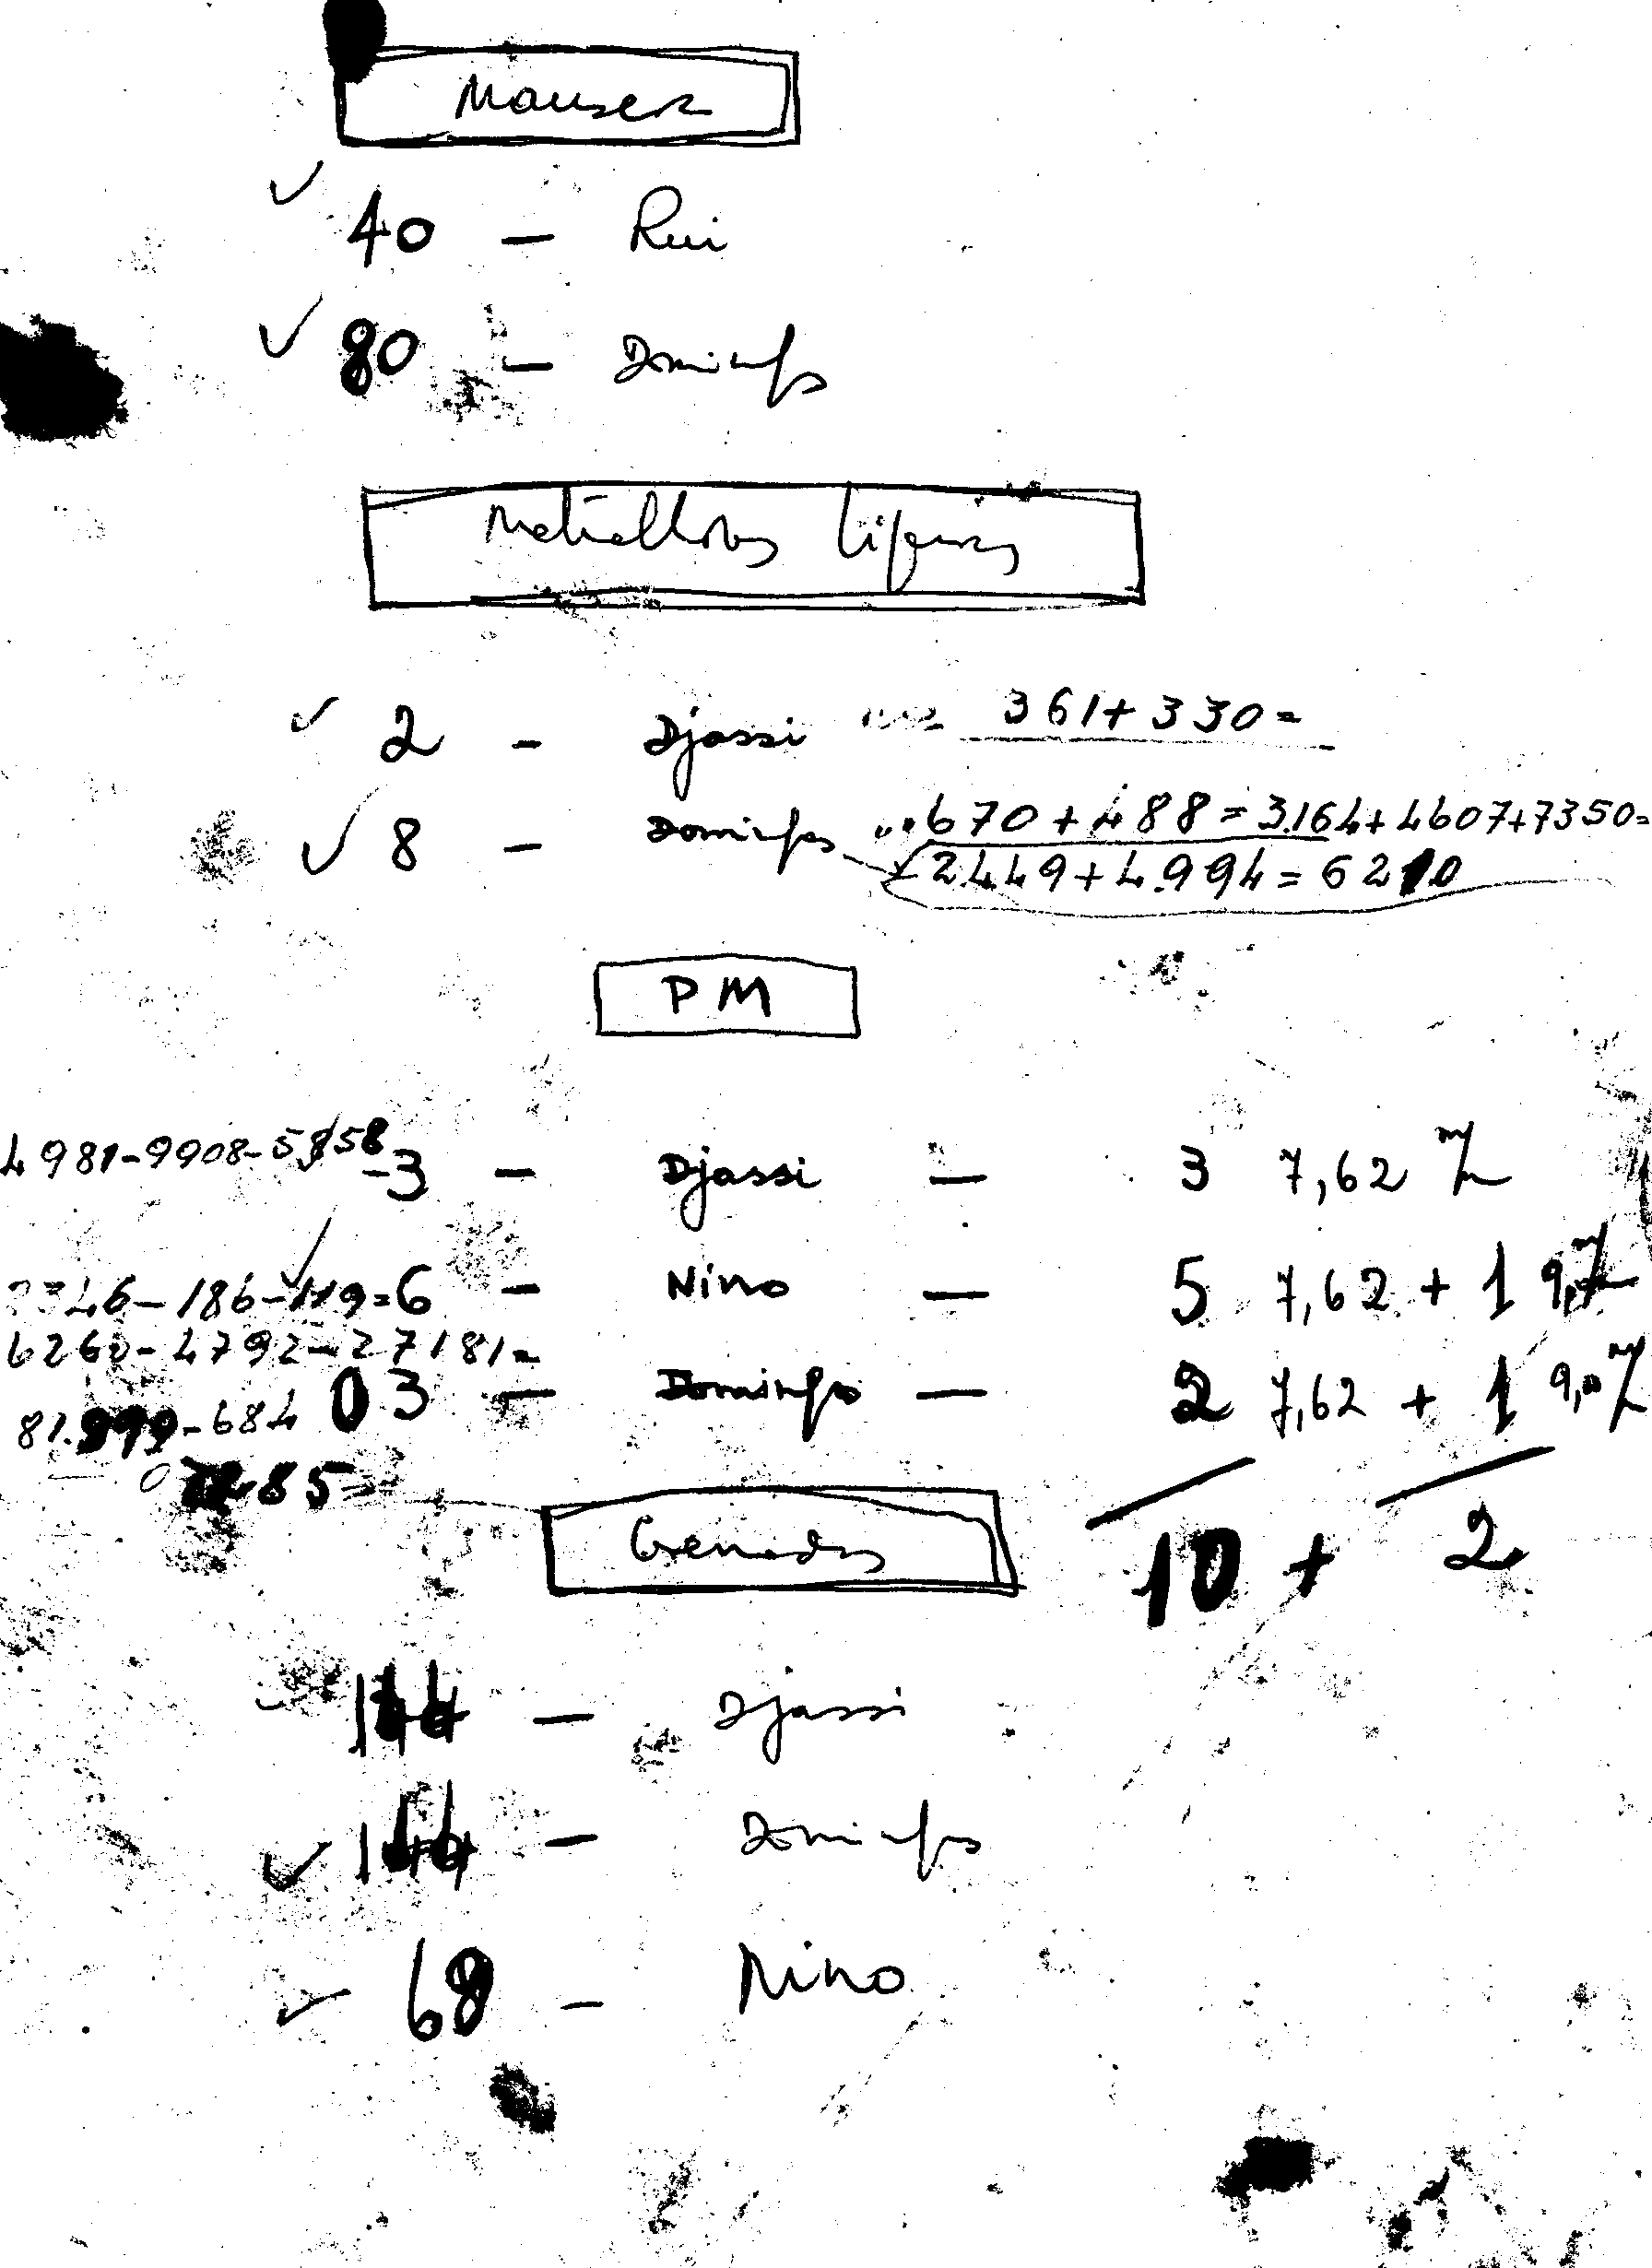 Mauser
✓ 40 — Rui
✓ 80 — Domingos
Metralhadoras Ligeiras
✓ 2 — Djassi 361+330=
✓ 8 — Domingos 670+488=3.164+4607+7350=
2.449+4.994=6210
PM
4981-9908-5858-3 — Djassi — 3 7,62 m/m
346-186-119=6 — Nino — 5 7,62 + 1 9 m/m
6260-4792-27181=
03 — Domingos — 2 7,62 + 1 9,0 m/m
81.999-684
85=
Granadas 10 + 2
144 — Djassi
✓ 144 — Domingos
✓ 68 — Nino